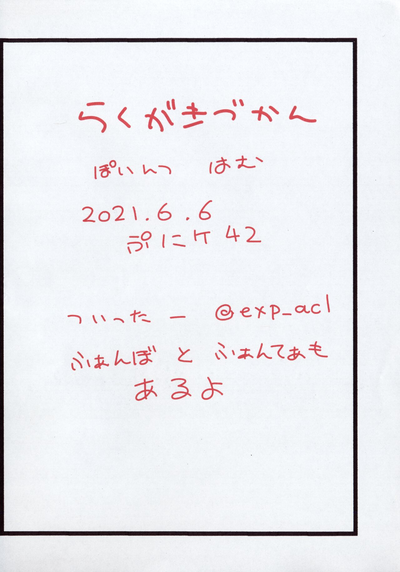 らくがきづかん
ぽいんつ はむ
2021.6.6
ぷにケ42
ついったー @exp_acl
ふぁんぼと ふぁんてぁも
あるよ